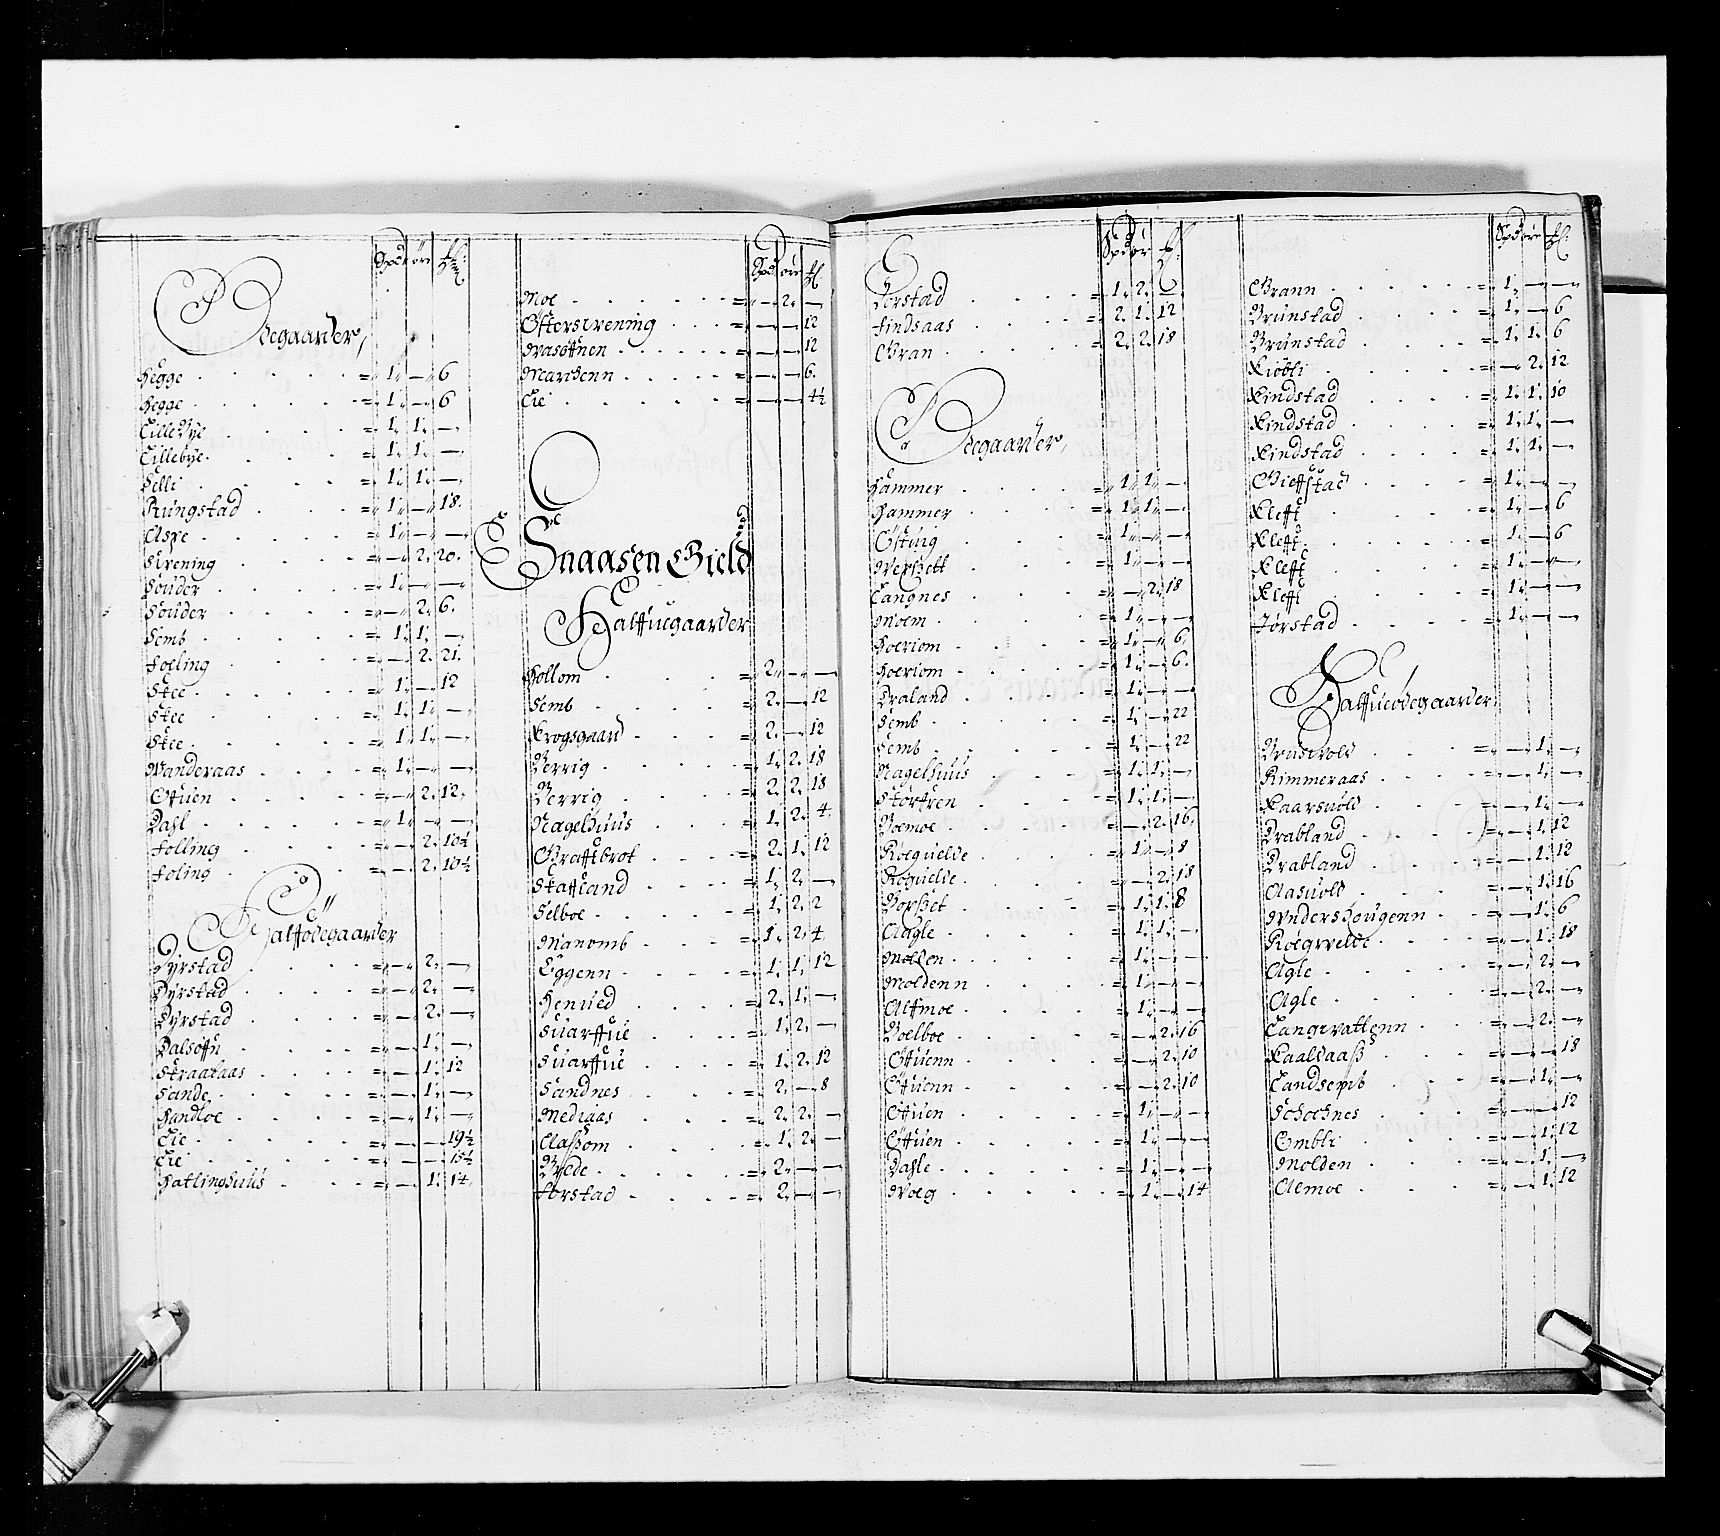 Spd ør ℔:
Ødegaarder,
Hegge = 1 — 6
Hegge = 1 — 6
Lillebÿe = 1 1 —
Lillebÿe = 1 1 —
Helle = 1 1 —
Rungstad = 1 — 18
Aspe = 1 — —
Sirening = — 2 20
Souder = 1 — —
Souder = — 2 6
Semb = 1 1 —
Foeling = — 2 21
Stee = 1 — 12
Stee = 1 1 —
Stee = 1 1 —
Wanderaas = 1 — —
Ottuen = — 2 12
Dahl = 1 — —
Folling = — 2 10½
Foling = — 2 10½
Halfødegaarder
Dÿrstad = — 2 —
Dÿrstad = — 2 —
Dÿrstad = — 2 —
Dalsøffn = — 1 —
Straataas = — 1 12
Sande = — 1 —
Sandloe = — 1 —
Eie = — — 19½
Eie = — — 15½
Hatlinghuus = — 1 14
Spd ør ℔
Moe = — 2 —
Østersirening = — — 12
Waasøffnen = — — 12
Marchenn = — — 6
Eie = — — 4½
Snaasen Gield
Halffuegaarder
Hollom = 2 — —
Semb = 2 — 12
Krogsgaard = 2 — 12
Berrig = 1 2 18
Berrig = 2 2 18
Nagelhuus = 1 2 4
Grafftbrot = 2 1 12
Staffland = 1 2 —
Selboe = 1 2 2
Manomb = 1 2 4
Eggenn = 1 1 12
Henued = 2 1 —
Suarffue = 1 2 —
Suarffue = 1 2 12
Sandnes = 2 — 8
Mediaas = 2 2 —
Claßom = 1 2 —
Brede = 2 — —
Forstad = 2 — —
Spd ør ℔:
Berstad = 1 2 —
Findsaas = 2 1 12
Gran = 2 2 18
Ødegaarder,
Hammer = 1 1 —
Hammer = 1 1 —
Østuig = 1 — —
Werßett = 1 — —
Langnes = — 2 18
Moem = 1 — —
Hoeriom = 1 — 6
Hoeriom = 1 — 6
Draland = 1 — —
Semb = 1 — 22
Semb = 1 — 22
Nagelhuus = 1 1 —
Størffren = 1 1 —
Boemoe = — 2 16
Roequelde = 1 — 8
Roquelde = — 2 18
Borßet = 1 1 8
Aagle = 1 1 —
Molden = 1 — —
Moldenn = 1 — —
Alffmoe = 1 — —
Boelboe = — 2 16
Ottuenn = — 2 10
Ottuenn = — 2 10
Ottuen = 1 — —
Ottuen = 1 — —
Dahle = 1 — —
Woeg = 1 — 14
Spd ør ℔:
Grann = 1 — —
Brunstad = 1 — 6
Brunstad = 1 1 6
Kiøbli = — 2 12
Kindstad = 1 1 10
Kindstad = 1 1 —
Kindstad = 1 1 —
Gieffstad = 1 — —
Kleff = 1 — 6
Kleff = 1 — 6
Kleff = 1 — —
Kleff = 1 — —
Jørstad = 1 — —
Halffueødegaarder,
Brundvold = — 1 —
Rimmeraas = — 1 —
Kaarsuold = — 1 —
Drabland = — 1 12
Drabland = — 1 12
Aasuold = — 1 16
Wndershougenn = — 1 6
Roegwelde = — 1 18
Agle = — 2 —
Agle = — 2 —
Langwattenn = — 2 —
Kaaldaaß = — — 18
Landsemb = — 1 —
Schochnes = — — 12
Embli = — 1 12
Molden = — 1 —
Aemoe = — 1 12